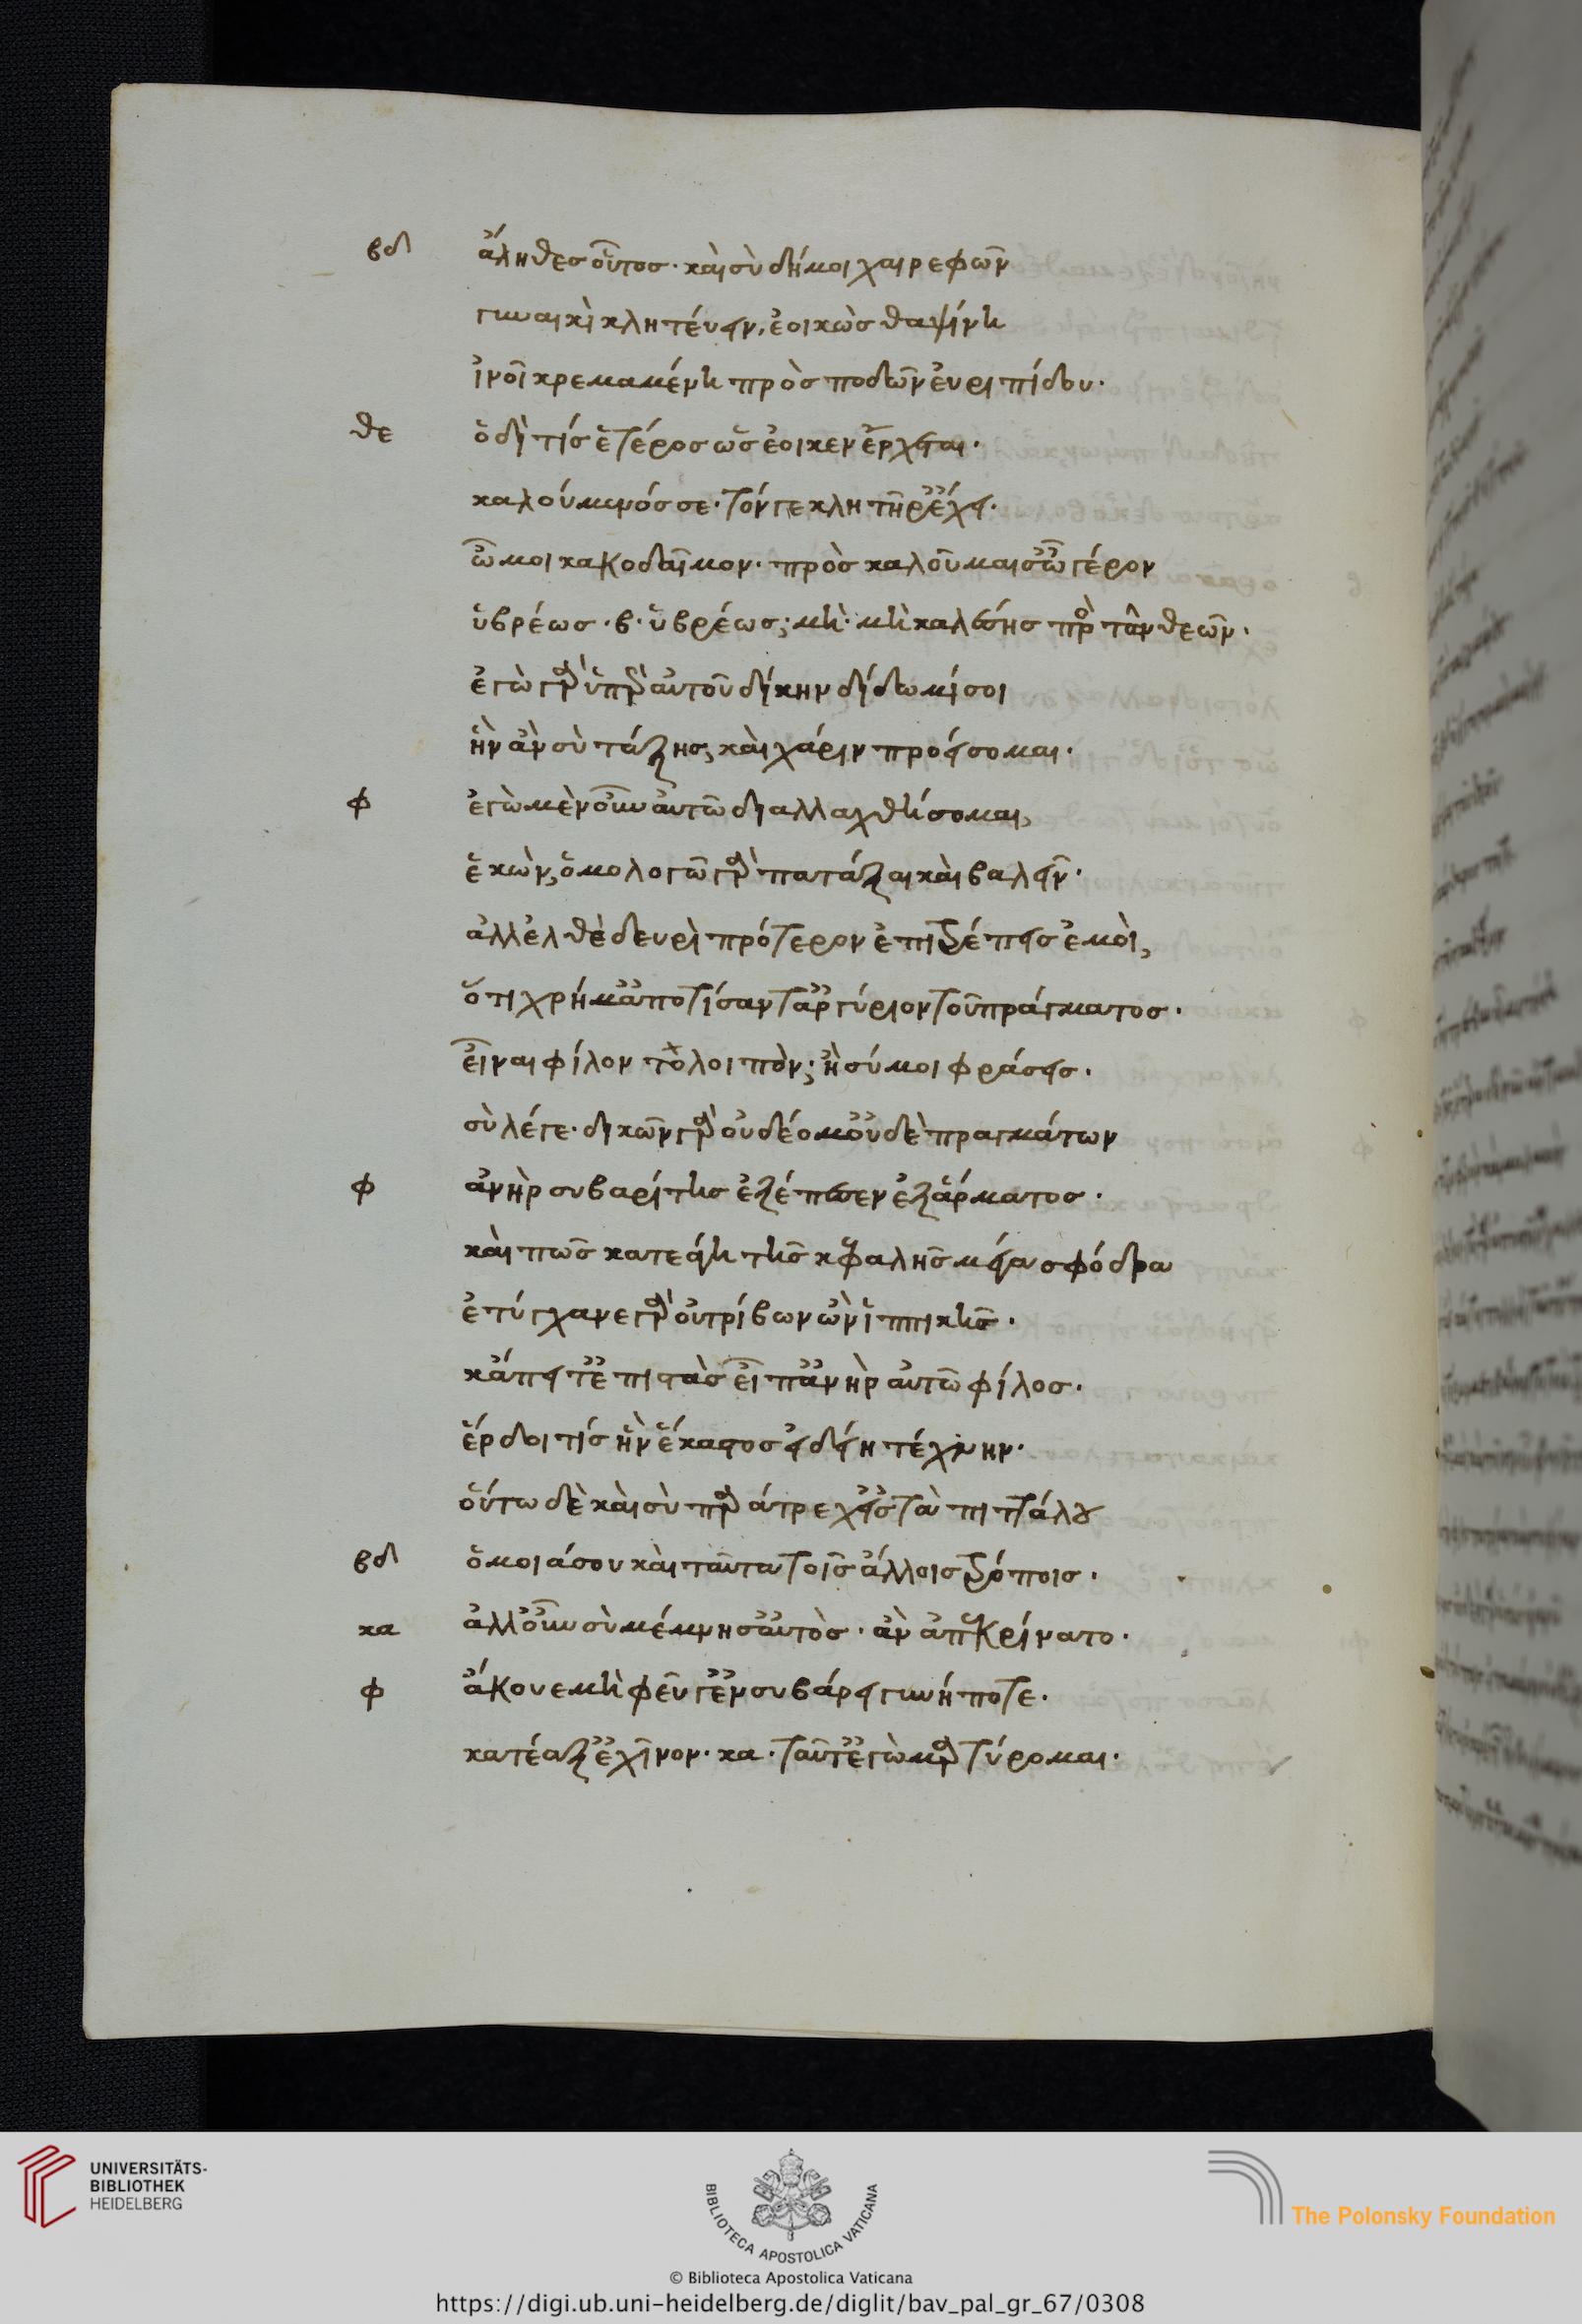 βδ ἄληθες οὗτος· καὶ σὺ δή μοι χαιρεφῶν
γυναικὶ κλητεύειν, ἐοικὼς θαψίνη
ἰνοῖ κρεμαμένη πρὸς ποδῶν εὐριπίδου·
θε ὁδὶ τίς ἕτερος ὡς ἔοικεν ἔρχεται·
καλούμενός σε· τόν γε κλητῆρ᾽ ἔχει·
ὤμοι κακοδαῖμον· προσκαλοῦμαι σ᾽ ὦ γέρον
ὕβρεως· β· ὕβρεως; μὴ· μὴ καλέσης πρὸς τῶν θεῶν·
ἐγὼ γὰρ ὑπὲρ αὐτοῦ δίκην δίδωμί σοι
ἣν ἂν σὺ τάξης, καὶ χάριν προσείσομαι·
φ ἐγὼ μὲν οὖν αὐτῶ διαλλαχθήσομαι,
ἑκών, ὁμολογῶ γὰρ πατάξαι καὶ βαλεῖν·
ἀλλ᾽ ἐλθὲ δευρὶ πρότερον ἐπιτρέπεις ἐμοὶ,
ὅτι χρή μ᾽ ἀποτίσαντ᾽ ἀργύριον τοῦ πράγματος·
εἶναι φίλον τὸ λοιπὸν; ἢ σύ μοι φράσεις·
σὺ λέγε· δικῶν γὰρ οὐ δέομ᾽ οὐδὲ πραγμάτων
φ ἀνὴρ συβαρίτης ἐξέπεσεν ἐξ ἅρματος·
καὶ πως κατεάγη τῆς κεφαλῆς μέγα σφόδρα
ἐτύγχανε γὰρ οὐ τρίβων ὢν ἱππικῆς·
κἄπειτ᾽ ἐπιστὰς εἶπ᾽ ἀνὴρ αὐτῶ φίλος·
ἔρδοι τίς ἣν ἕκαστος εἰδείη τέχνην·
οὕτω δὲ καὶ σὺ παράτρεχ᾽ εἰς τὰ πιττάλου
βδ ὅμοιά σου καὶ ταῦτα τοῖς ἄλλοις τρόποις·
κα ἀλλ᾽ οὖν σὺ μέμνησ᾽ αὐτὸς· ἂν ἀπεκρίνατο·
φ ἄκουε μὴ φεῦγ᾽ ἐν συβάρει γυνή ποτε·
κατέαξ᾽ ἐχῖνον· κα· ταῦτ᾽ ἐγὼ μαρτύρομαι·
UNIVERSITÄTS-
BIBLIOTHEK
HEIDELBERG
BIBLIOTECA APOSTOLICA VATICANA
The Polonsky Foundation
© Biblioteca Apostolica Vaticana
https://digi.ub.uni-heidelberg.de/diglit/bav_pal_gr_67/0308